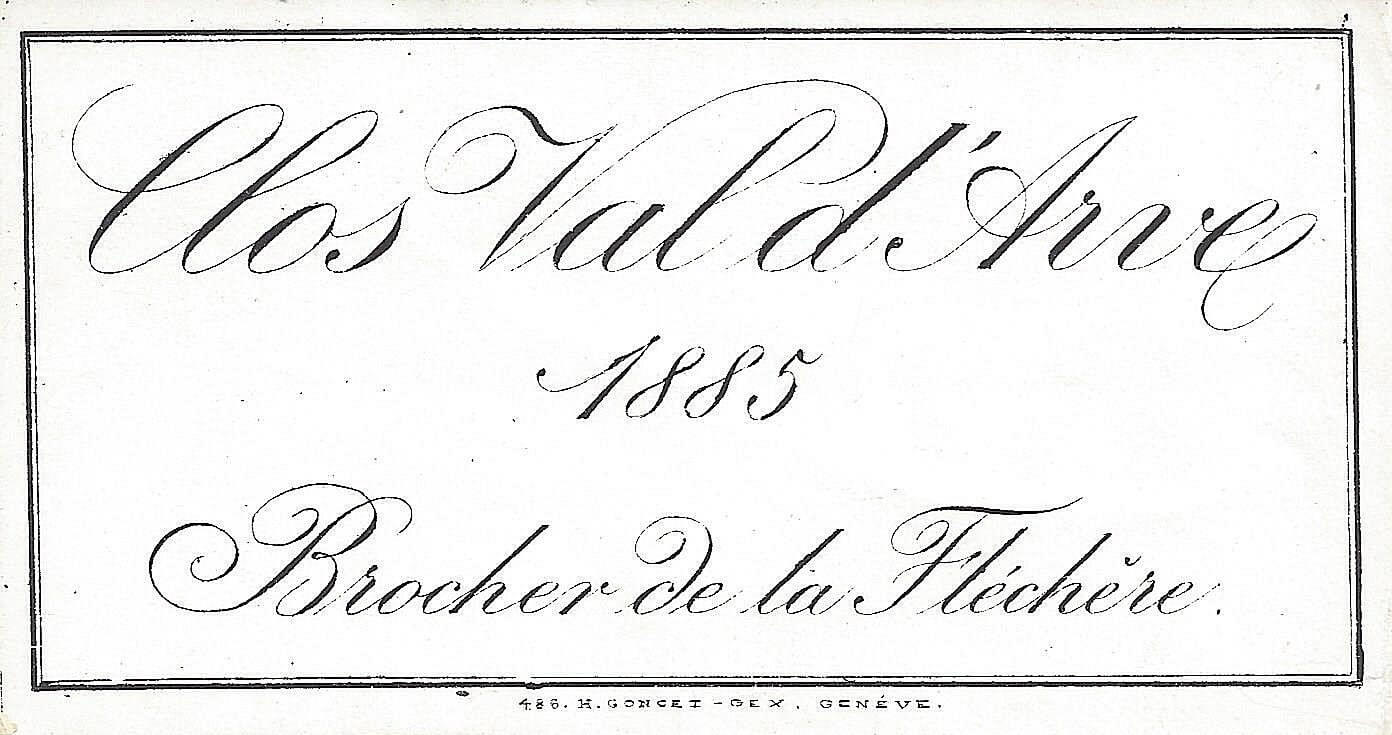 Clos Val d'Arve
1885
Brocher de la Fléchère.
486. H. GONCET-GEX, GENÉVE.